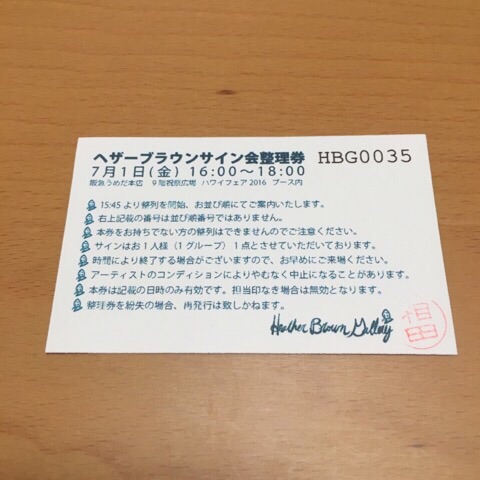 ヘザーブラウンサイン会整理券 HBG0035
7月1日(金) 16:00～18:00
阪急うめだ本店 9階祝祭広場 ハワイフェア2016 ブース内
15:45より整列を開始、お並び順にてご案内いたします。
右上記載の番号は並び順番号ではありません。
本券をお持ちでない方の整列はできませんのでご注意ください。
サインはお1人様(1グループ)1点とさせていただいております。
時間により終了する場合がございますので、お早めにご来場ください。
アーティストのコンディションによりやむなく中止になることがあります。
本券は記載の日時のみ有効です。担当印なき場合は無効となります。
整理券を紛失の場合、再発行は致しかねます。
Heather Brown Gallery